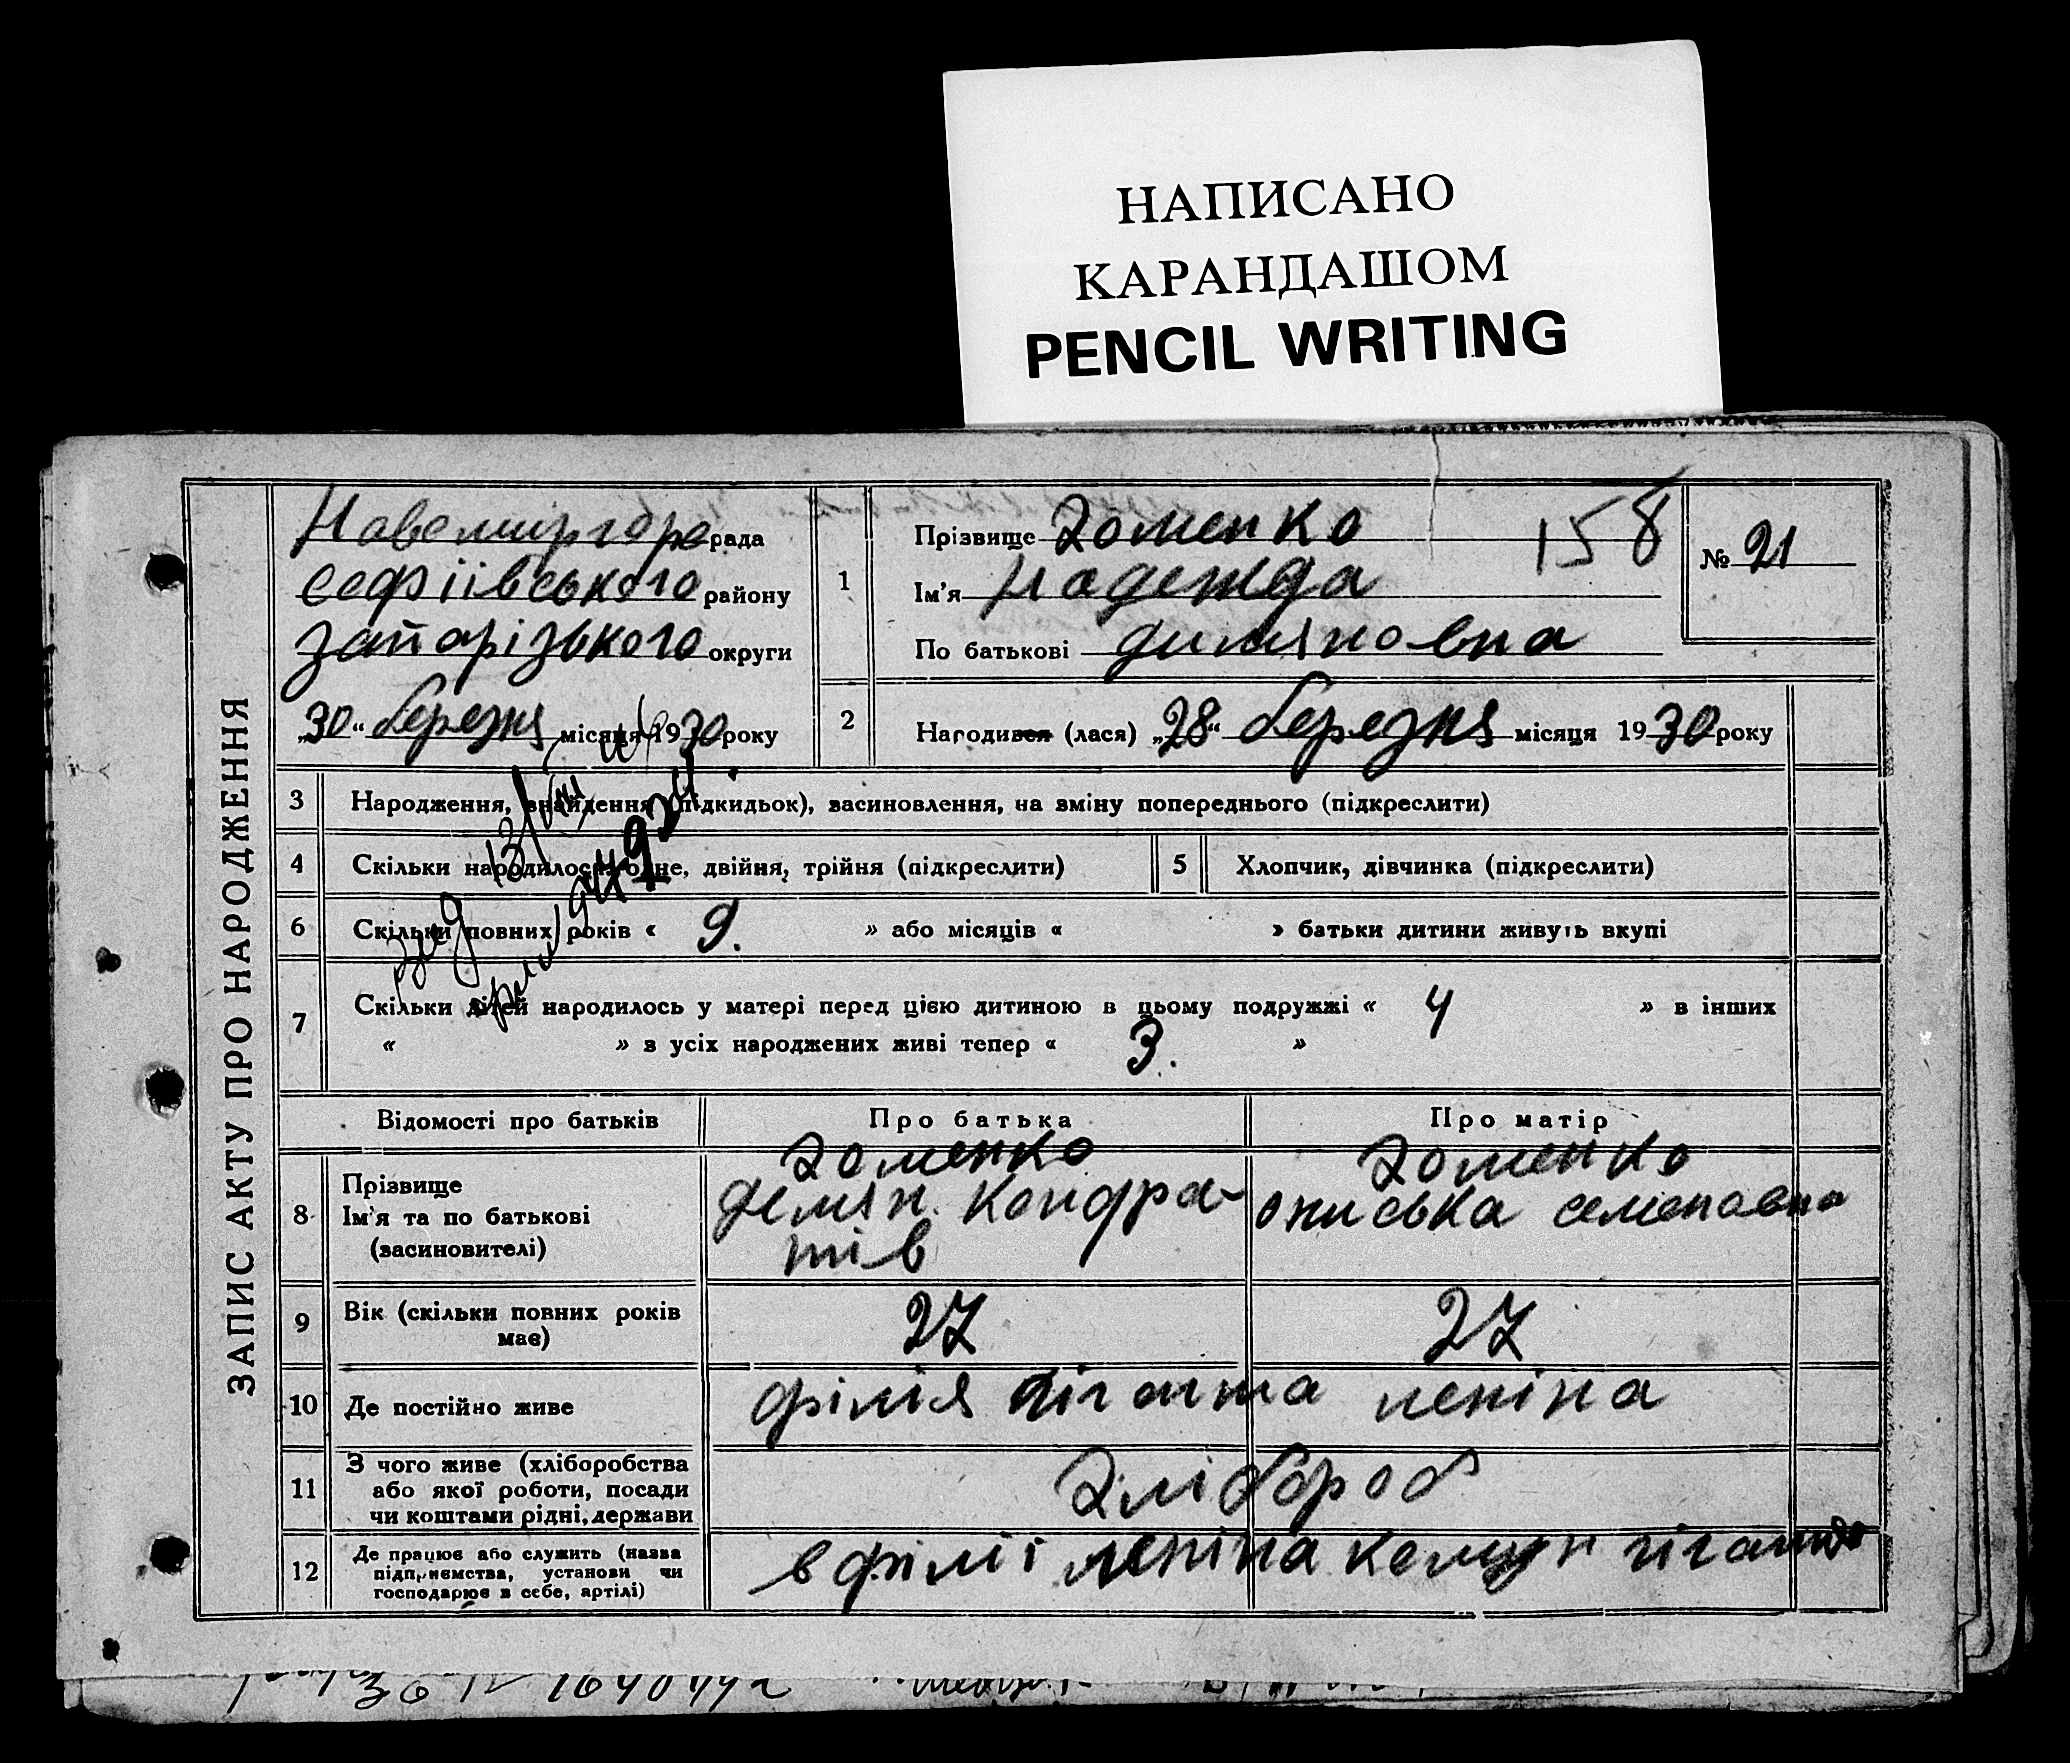 НАПИСАНО
КАРАНДАШОМ
PENCIL WRITING
ЗАПИС АКТУ ПРО НАРОДЖЕННЯ
Новомиргоро рада
Софіівського району
Запорізького округи
„30“ березня місяця 1930 року
1
Прізвище Хоменко
158
№ 21
Ім'я Надежда
По батькові димяновна
2
Народився (лася) „28“ березня місяця 1930 року
3 Народження, знайдення (підкидьок), засиновлення, на зміну попереднього (підкреслити)
4 Скільки народилось: одне, двійня, трійня (підкреслити)
5 Хлопчик, дівчинка (підкреслити)
6 Скільки повних років « 9. » або місяців « » батьки дитини живуть вкупі
7 Скільки дітей народилось у матері перед цією дитиною в цьому подружжі « 4 » в інших
« » в усіх народжених живі тепер « 3. »
Відомості про батьків
Про батька
Про матір
8 Прізвище
Ім'я та по батькові
(засиновителі)
Хоменко
демян Кондра-
тів
Хоменко
ониська семеновна
9 Вік (скільки повних років
має)
27
27
10 Де постійно живе
філія гіганта леніна
11 З чого живе (хліборобства
або якої роботи, посади
чи коштами рідні, держави
Хлібороб
12 Де працює або служить (назва
підприємства, установи чи
господарює в себе, артілі)
в філіі леніна комун гіганта